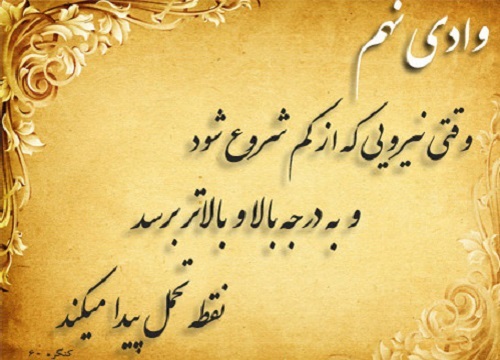 وادی نهم
وقتی نیرویی که از کم شروع شود
و به درجه بالا و بالاتر برسد
نقطه تحمل پیدا میکند
کنگره ۶۰